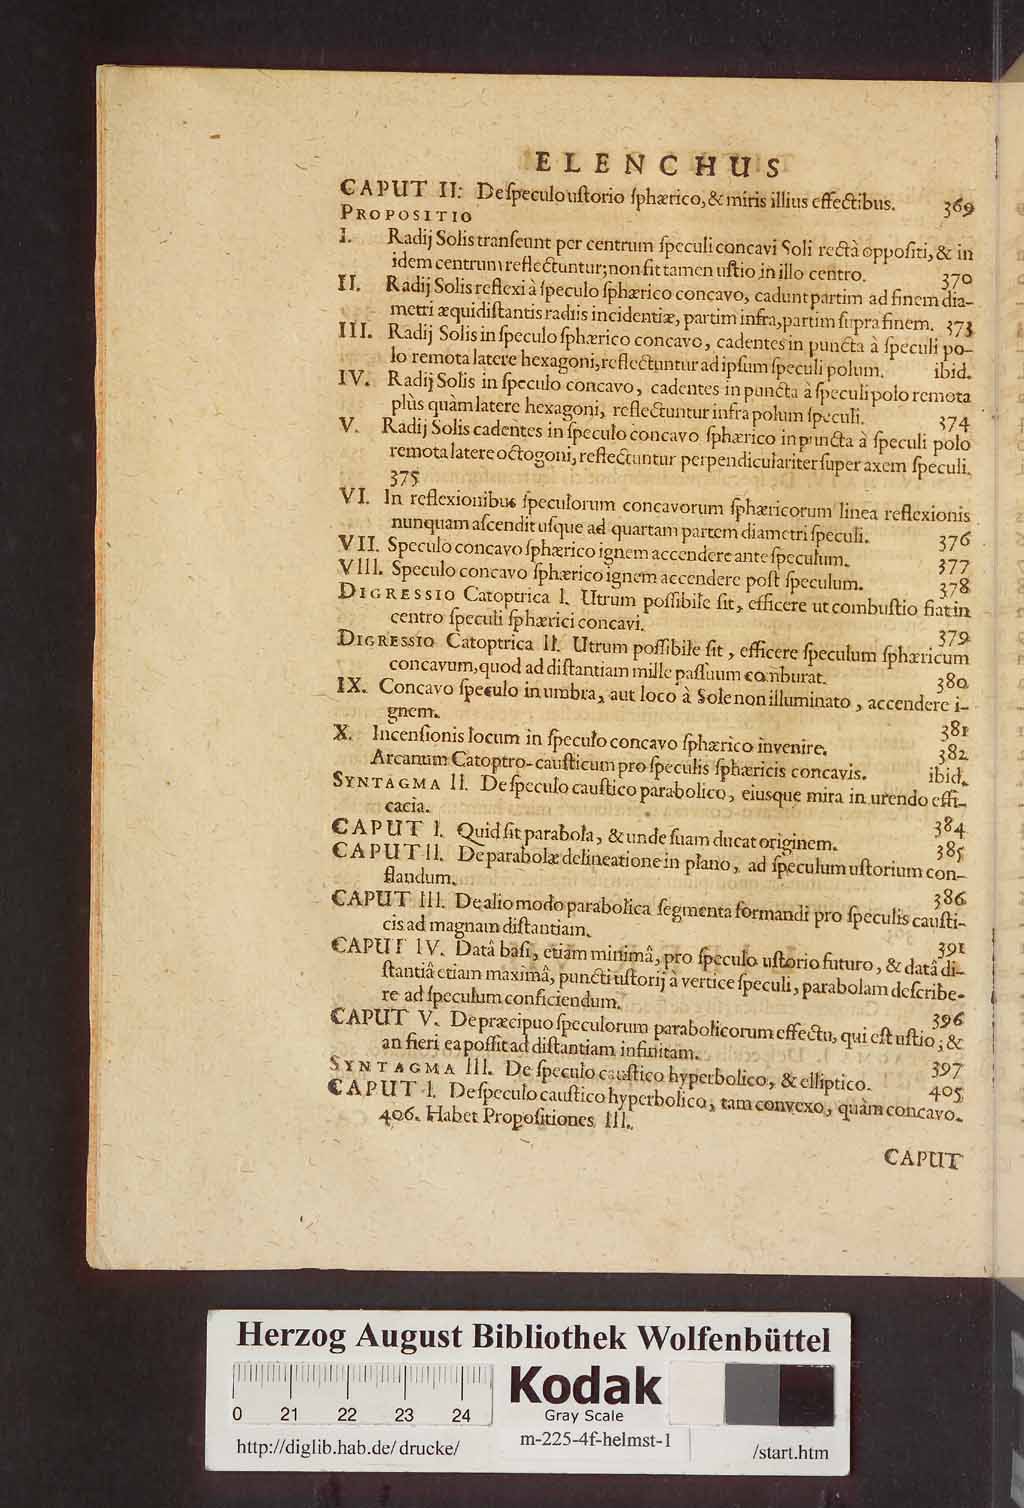 ELENCHUS
CAPUT II: De ſpeculo uſtorio ſphærico, & miris illius effectibus. 369
PROPOSITIO
I. Radij Solis tranſeunt per centrum ſpeculi concavi Soli rectà oppoſiti, & in
idem centrum reflectuntur; non fit tamen uſtio in illo centro. 370
II. Radij Solis reflexi à ſpeculo ſphærico concavo, cadunt partim ad finem dia-
metri æquidiſtantis radiis incidentiæ, partim infra, partim ſupra finem. 373
III. Radij Solis in ſpeculo ſphærico concavo, cadentes in puncta à ſpeculi po-
lo remota latere hexagoni, reflectuntur ad ipſum ſpeculi polum. ibid.
IV. Radij Solis in ſpeculo concavo, cadentes in puncta à ſpeculi polo remota
plùs quàm latere hexagoni, reflectuntur infra polum ſpeculi. 374
V. Radij Solis cadentes in ſpeculo concavo ſphærico in puncta à ſpeculi polo
remota latere octogoni, reflectuntur perpendiculariter ſuper axem ſpeculi.
375
VI. In reflexionibus ſpeculorum concavorum ſphæricorum linea reflexionis
nunquam aſcendit uſque ad quartam partem diametri ſpeculi. 376
VII. Speculo concavo ſphærico ignem accendere ante ſpeculum. 377
VIII. Speculo concavo ſphærico ignem accendere poſt ſpeculum. 378
DIGRESSIO Catoptrica I. Utrum poſſibile ſit, efficere ut combuſtio fiat in
centro ſpeculi ſphærici concavi. 379
DIGRESSIO Catoptrica II. Utrum poſſibile ſit, efficere ſpeculum ſphæricum
concavum, quod ad diſtantiam mille paſſuum comburat. 380
IX. Concavo ſpeculo in umbra, aut loco à Sole non illuminato, accendere i-
gnem. 381
X. Incenſionis locum in ſpeculo concavo ſphærico invenire. 382
Arcanum Catoptro-cauſticum pro ſpeculis ſphæricis concavis. ibid.
SYNTAGMA II. De ſpeculo cauſtico parabolico, eiusque mira in urendo effi-
cacia. 384
CAPUT I. Quid ſit parabola, & unde ſuam ducat originem. 385
CAPUT II. De parabolæ delineatione in plano, ad ſpeculum uſtorium con-
flandum. 386
CAPUT III. De alio modo parabolica ſegmenta formandi pro ſpeculis cauſti-
cis ad magnam diſtantiam. 391
CAPUT IV. Datâ baſi, etiam minimâ, pro ſpeculo uſtorio futuro, & datâ di-
ſtantiâ etiam maximâ, puncti uſtorij à vertice ſpeculi, parabolam deſcribe-
re ad ſpeculum conficiendum. 396
CAPUT V. De præcipuo ſpeculorum parabolicorum effectu, qui eſt uſtio; &
an fieri ea poſſit ad diſtantiam infinitam. 397
SYNTAGMA III. De ſpeculo cauſtico hyperbolico, & elliptico. 405
CAPUT I. De ſpeculo cauſtico hyperbolico, tam convexo, quàm concavo.
406. Habet Propoſitiones III.
CAPUT
Herzog August Bibliothek Wolfenbüttel
0 21 22 23 24
Kodak
Gray Scale
http://diglib.hab.de/drucke/ m-225-4f-helmst-1 /start.htm